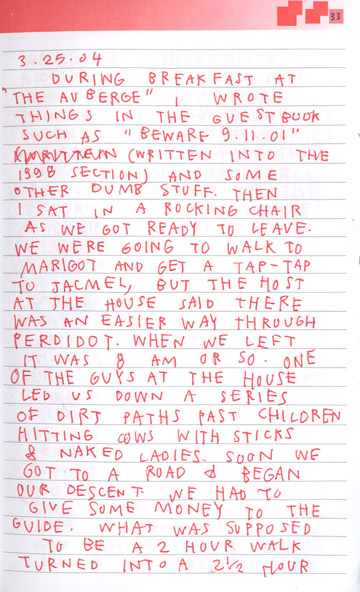 33
3.25.04
DURING BREAKFAST AT
"THE AUBERGE" I WROTE
THINGS IN THE GUESTBOOK
SUCH AS "BEWARE 9.11.01"
(WRITTEN INTO THE
1998 SECTION) AND SOME
OTHER DUMB STUFF. THEN
I SAT IN A ROCKING CHAIR
AS WE GOT READY TO LEAVE.
WE WERE GOING TO WALK TO
MARIGOT AND GET A TAP-TAP
TO JACMEL, BUT THE HOST
AT THE HOUSE SAID THERE
WAS AN EASIER WAY THROUGH
PERDIDOT. WHEN WE LEFT
IT WAS 8 AM OR SO. ONE
OF THE GUYS AT THE HOUSE
LED US DOWN A SERIES
OF DIRT PATHS PAST CHILDREN
HITTING COWS WITH STICKS
& NAKED LADIES. SOON WE
GOT TO A ROAD & BEGAN
OUR DESCENT. WE HAD TO
GIVE SOME MONEY TO THE
GUIDE. WHAT WAS SUPPOSED
TO BE A 2 HOUR WALK
TURNED INTO A 2 1/2 HOUR